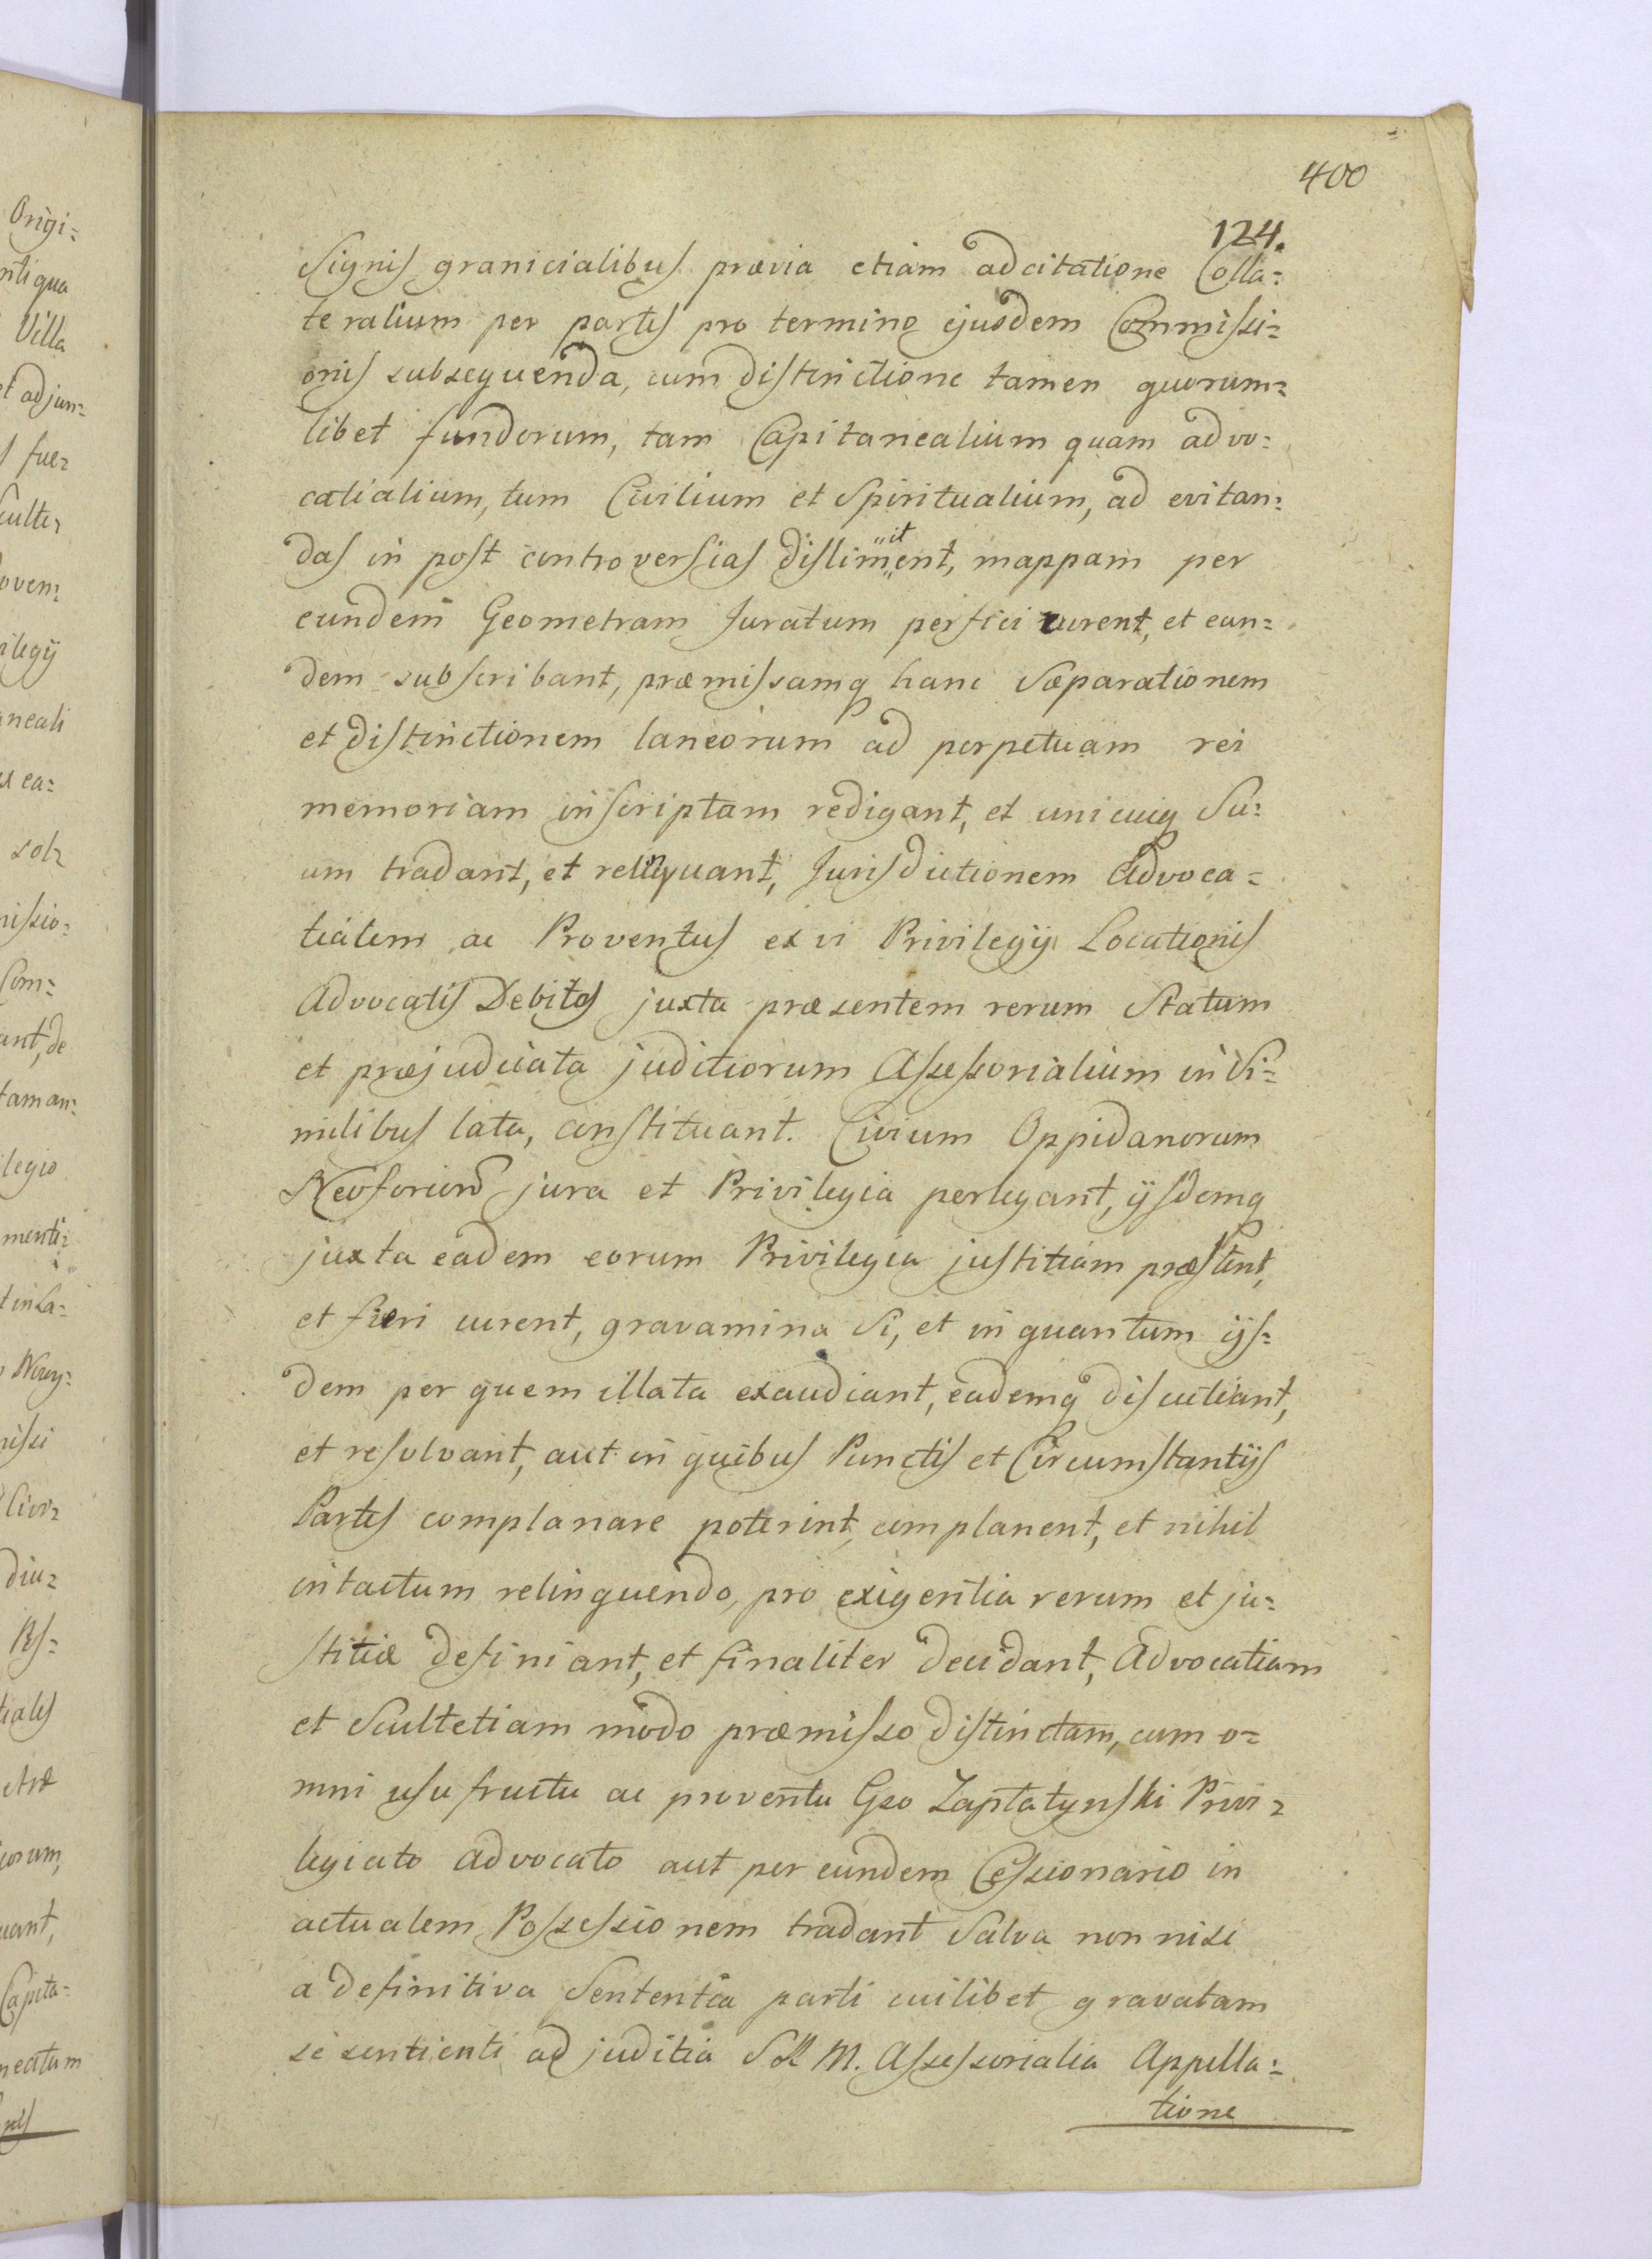 400
124.
Signis granicialibus prævia etiam adcitatione Colla=
teralium per partes pro termino ejusdem Commissi=
onis subsequenda, cum distinctione tamen quorum=
libet fundorum, tam Capitanealium quam advo=
catialium, tum Civilium et Spiritualium, ad evitan=
das in post controversias dislimitent, mappam per
eundem Geometram Juratum perfici curent, et ean=
dem subscribant, præmissamq hanc Sæparationem
et distinctionem laneorum ad perpetuam rei
memoriam inscriptam redigant, et unicuiq Su=
um tradant, et relinquant, Jurisdictionem Advoca=
tialem ac Proventus ex vi Privilegij Locationis
Advocatis Debitos juxta præsentem rerum Statum
et præjudicata juditiorum Assessorialium in Si=
milibus lata, constituant. Civium Oppidanorum
Neoforien jura et Privilegia perlegant, ijsdemq
juxta eadem eorum Privilegia justitiam præstent,
et fieri curent, gravamina Si, et in quantum ijs=
dem per quem illata exaudiant, eademq discutiant,
et resolvant, aut in quibus Punctis et Circumstantijs
Partes complanare poterint, complanent, et nihil
intactum relinquendo, pro exigentia rerum et ju=
stitiæ definiant, et finaliter decidant, Advocatiam
et Scultetiam modo præmisso distinctam, cum o=
mni usufructu ac proventu Gso Zaptatynski Privi=
legiato advocato aut per eundem Cessionario in
actualem Possessionem tradant Salva non nisi
a definitiva Sententia parti cuilibet gravatam
se sentienti ad juditia S R M. Assessorialia Appella=
tione
Origi=
ntiqua
Villa
et adjun=
fue=
culte=
ovem=
ilegij
neali
ex ea=
sol=
missio=
Com=
ant, de
taman=
legio
menti=
t in La=
nissi
Civi=
diu=
Rs=
tiales
orum,
uant,
Capita=
neatum